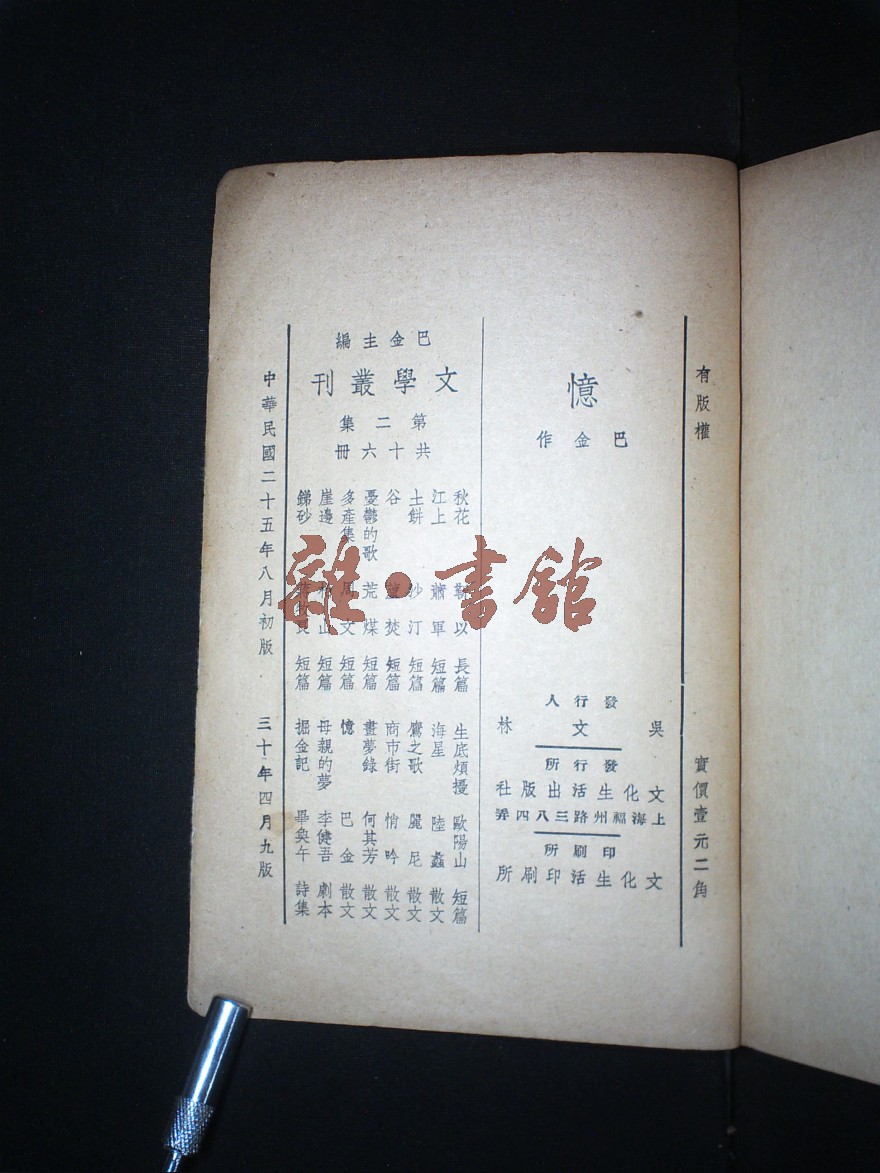 有版權
實價壹元二角
憶
巴金作
發行人
吳文林
發行所
文化生活出版社
上海福州路三八四弄
印刷所
文化生活印刷所
巴金主編
文學叢刊
第二集
共十六冊
秋花 靳以 長篇
江上 蕭軍 短篇
土餅 沙汀 短篇
谷 蘆焚 短篇
憂鬱的歌 荒煤 短篇
多產集 周文 短篇
崖邊 山 短篇
銻砂 蔣牧良 短篇
生底煩擾 歐陽山 短篇
海星 陸蠡 散文
鷹之歌 麗尼 散文
商市街 悄吟 散文
畫夢錄 何其芳 散文
憶 巴金 散文
母親的夢 李健吾 劇本
掘金記 畢奐午 詩集
中華民國二十五年八月初版
三十年四月九版
雜·書館